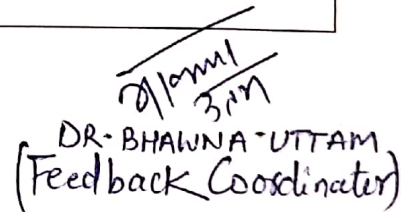 भावना
उत्तम
DR. BHAWNA-UTTAM
(Feedback Coordinator)